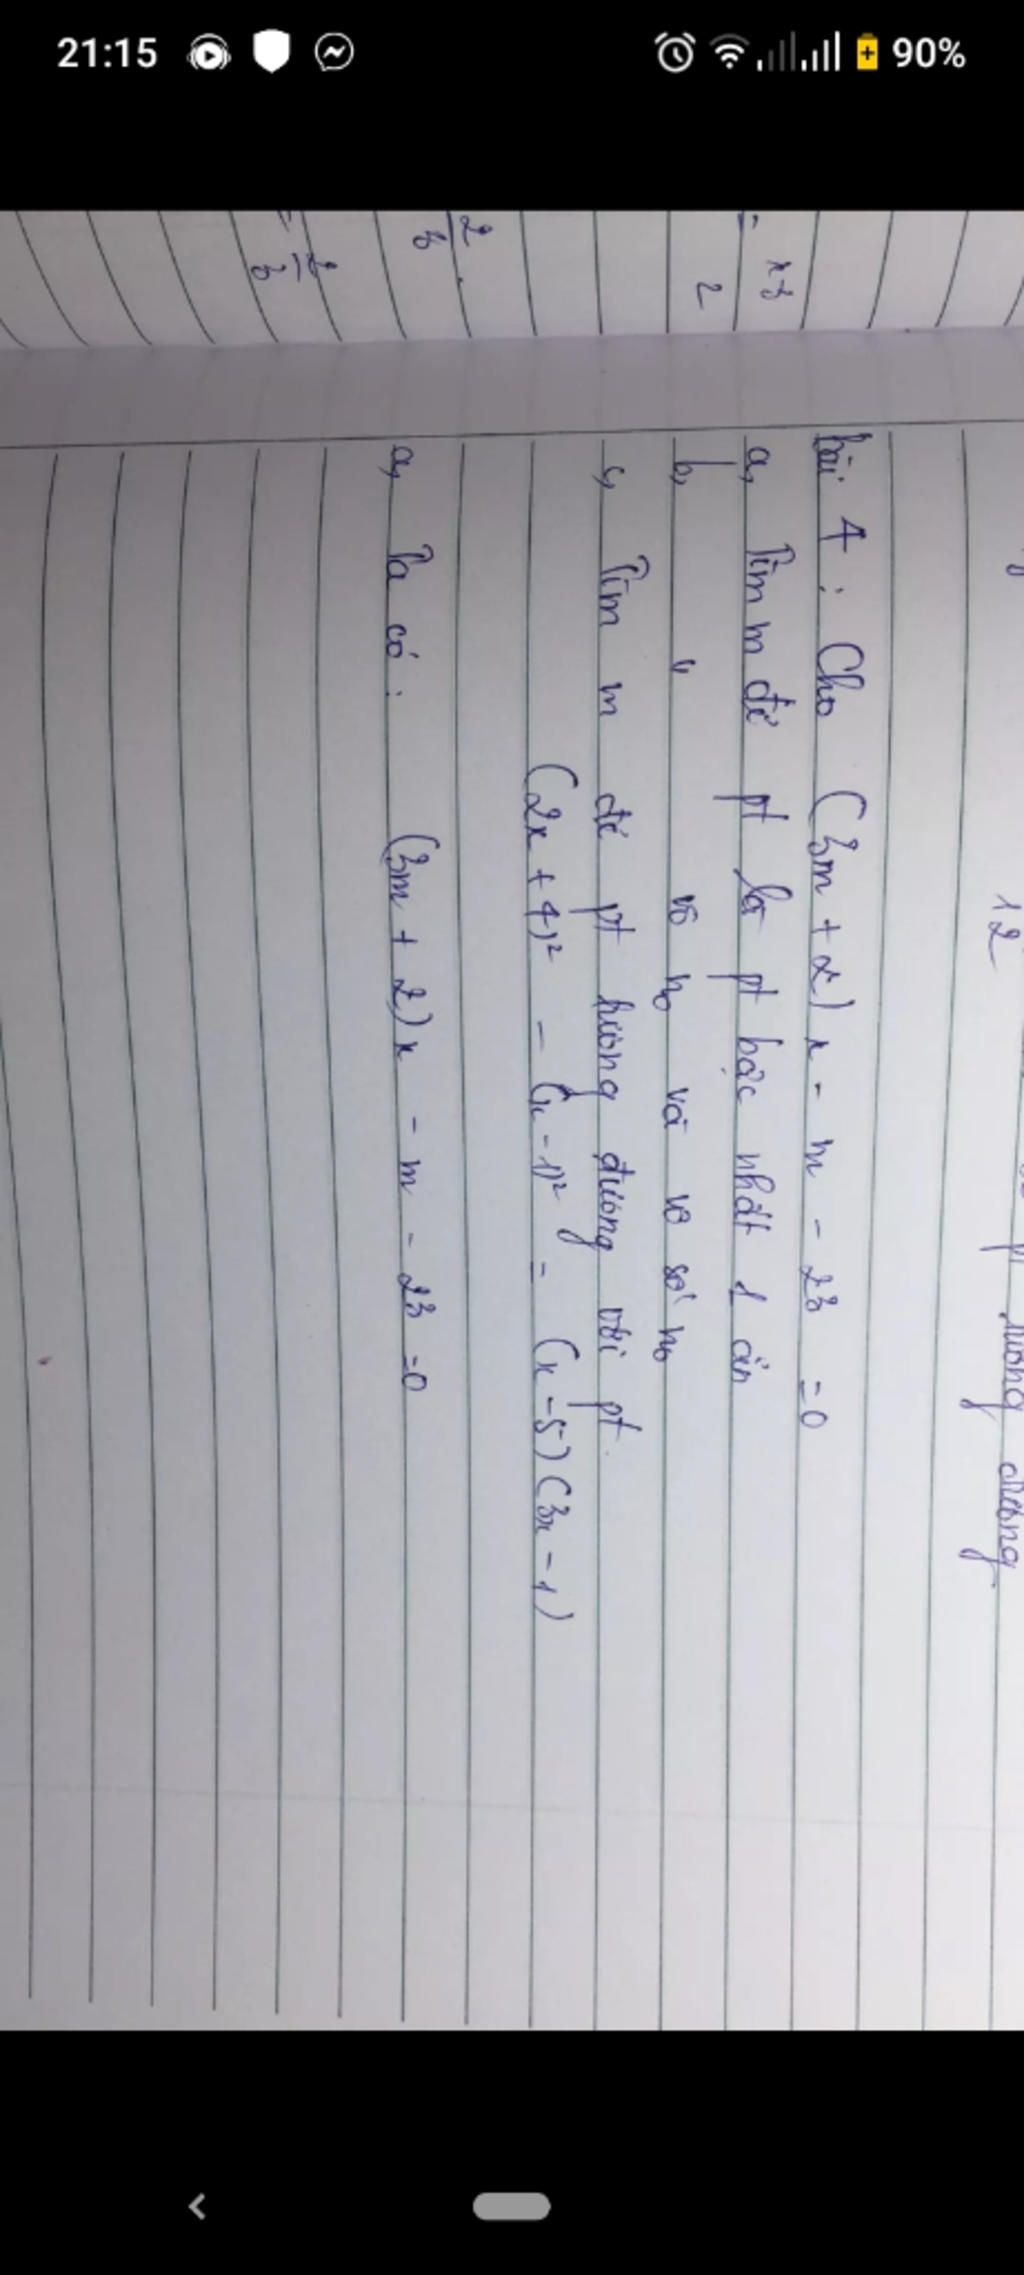 21:15
90%
x-3
2
2
3
2
3
12
pt tương đương
bài 4 : Cho (3m + 2) x - m - 23 = 0
a, Tìm m để pt là pt bậc nhất 1 ẩn
b, " vô n0 và vô số n0
c, Tìm m để pt tương đương với pt
(2x + 4)² - (x - 1)² = (x - 5) (3x - 1)
a, Ta có : (3m + 2) x - m - 23 = 0